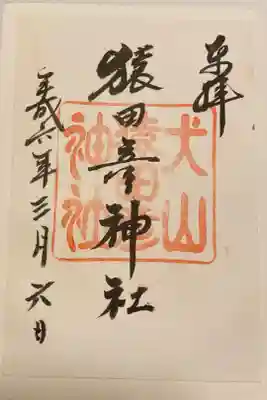 奉拝
猿田彦神社
平成六年三月六日
犬山
猿田彦
神社